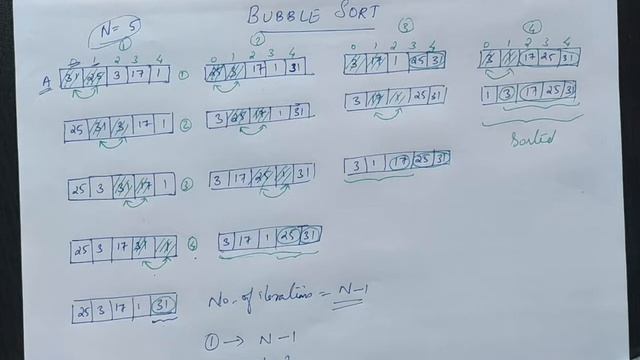 BUBBLE SORT
N=5
① 
0 1 2 3 4
A 31 25 3 17 1 ①
25 31 3 17 1 ②
25 3 31 17 1 ③
25 3 17 31 1 ④
25 3 17 1 31
②
0 1 2 3 4
25 3 17 1 31
3 25 17 1 31
3 17 25 1 31
3 17 1 25 31
③
0 1 2 3 4
3 17 1 25 31
3 17 1 25 31
3 1 17 25 31
④
0 1 2 3 4
3 1 17 25 31
1 3 17 25 31
Sorted
No. of iterations = N-1
① → N-1